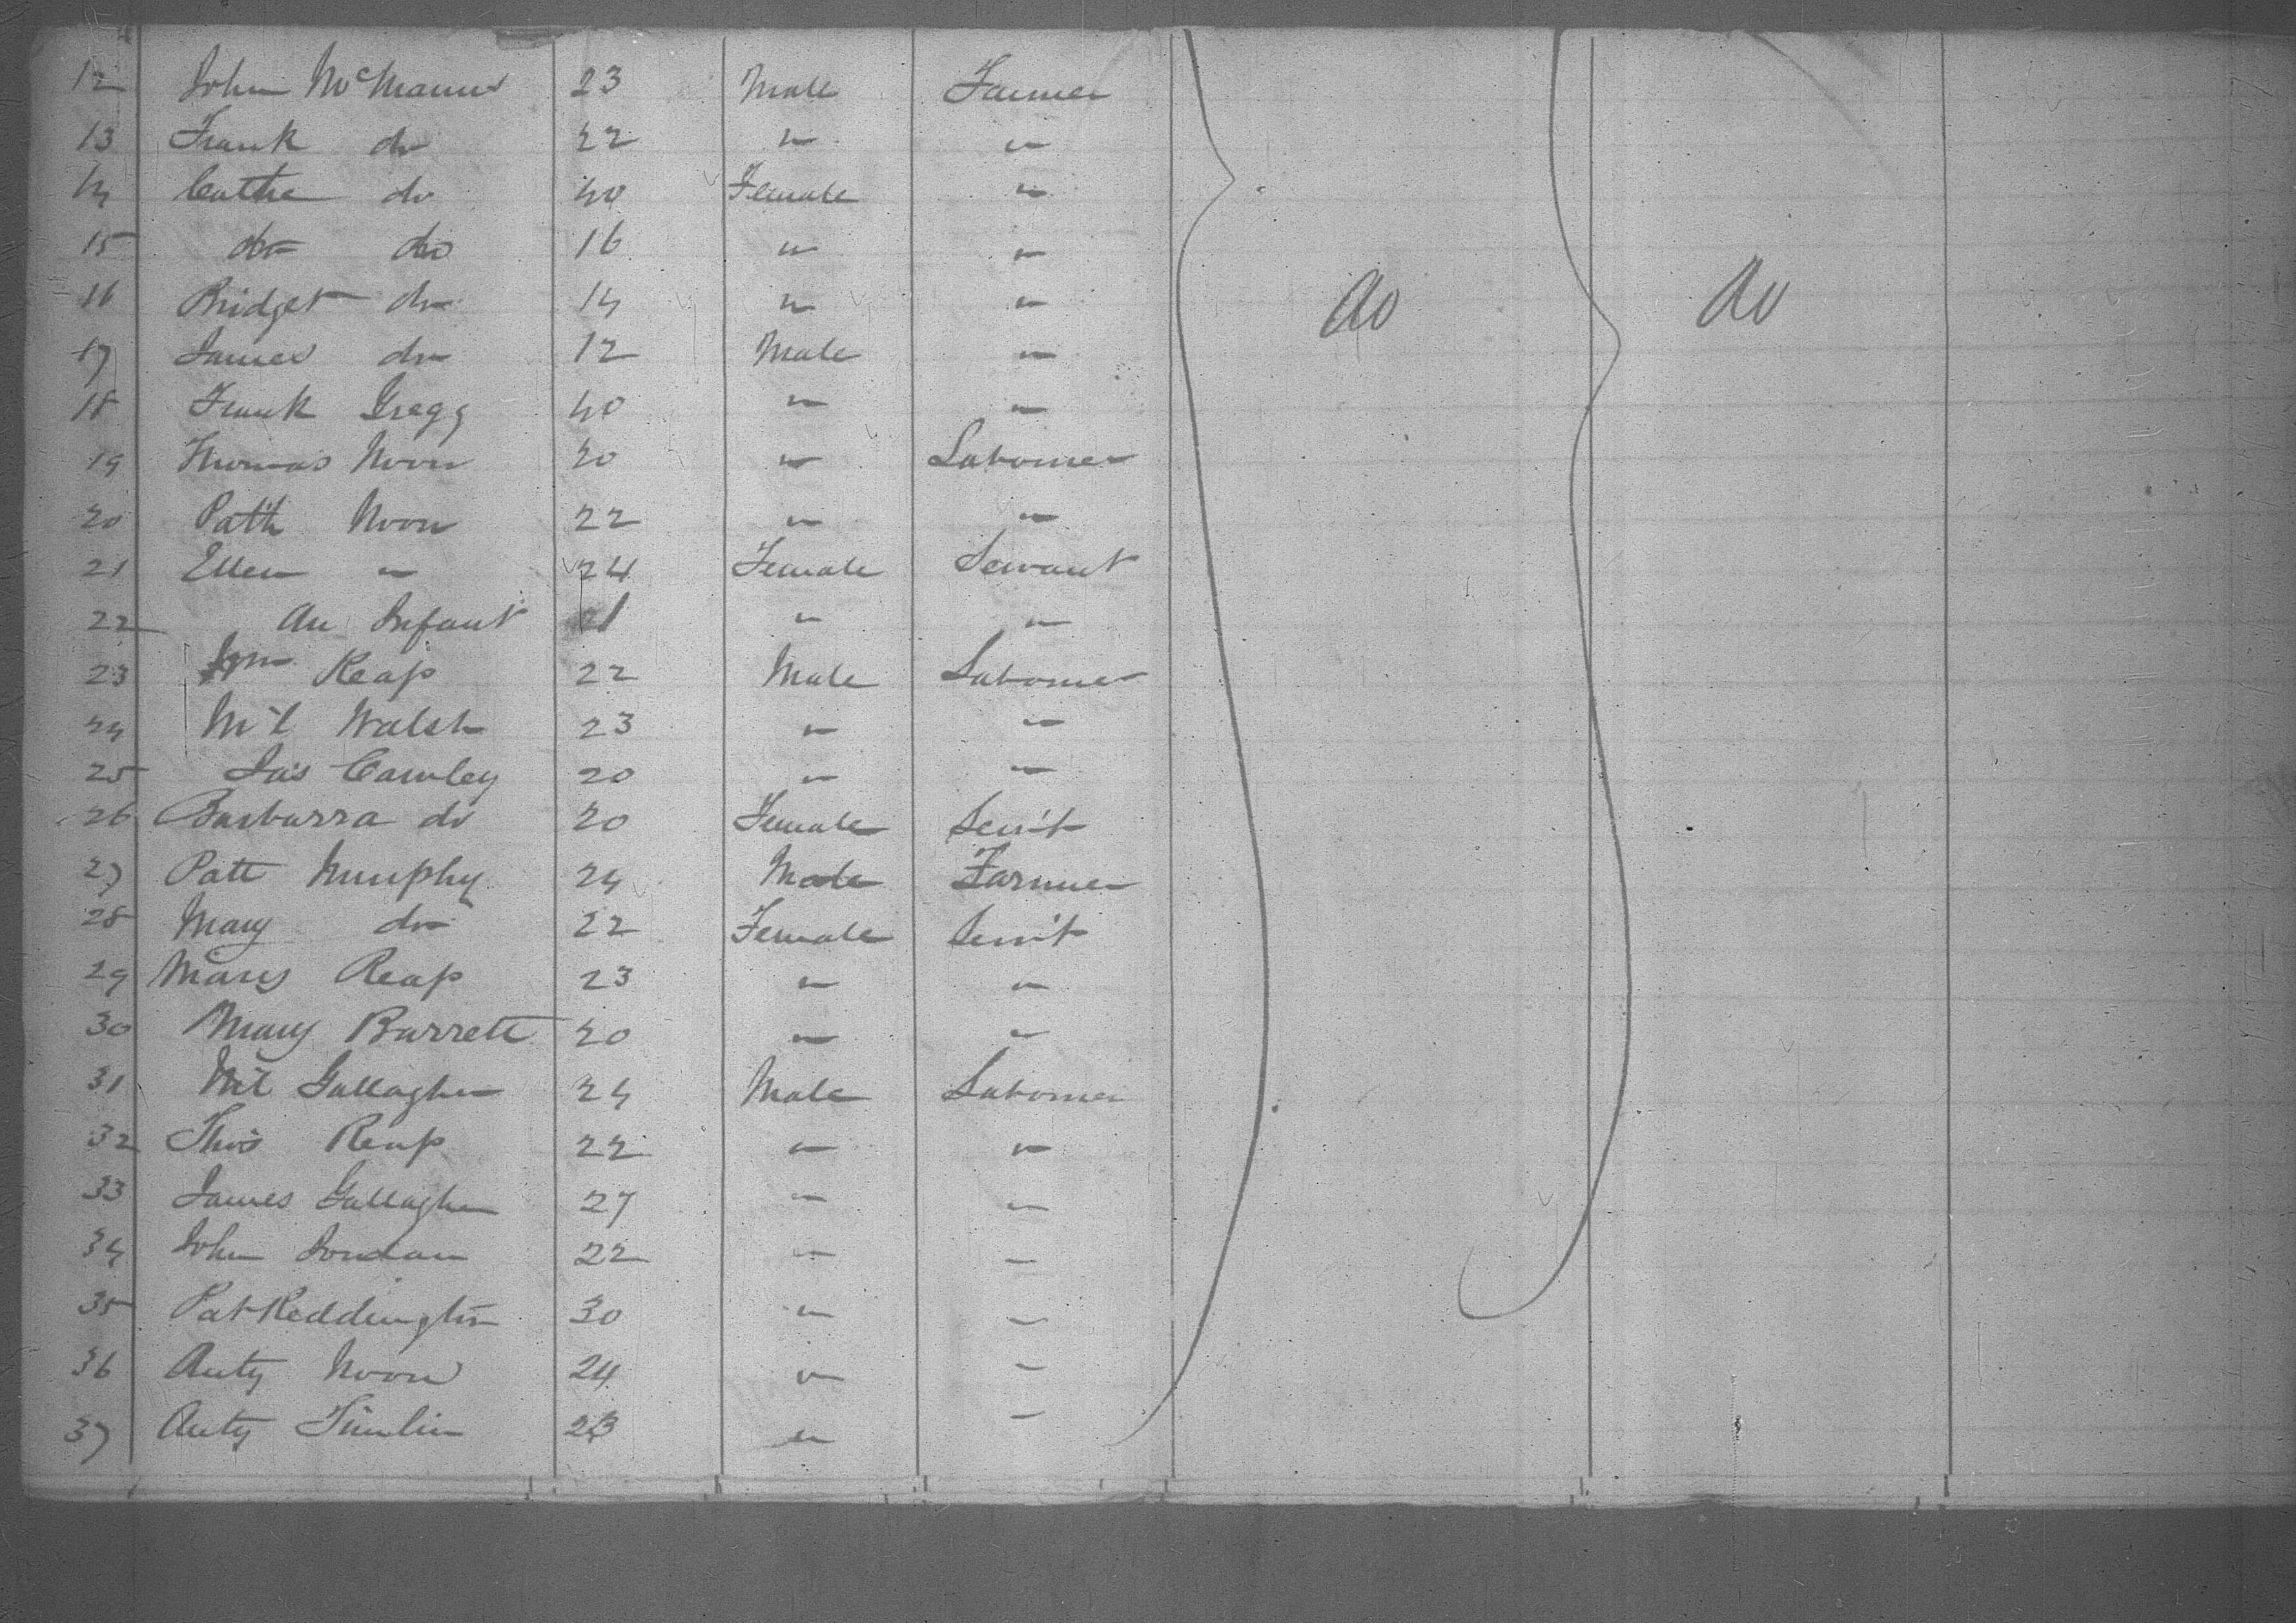 12 John McManus 23 Male Farmer
13 Frank do 22 " "
14 Cathe do 40 Female "
15 do do 16 " "
16 Bridget do 14 " "
17 James do 12 Male "
18 Frank Gregg 40 " "
19 Thomas Noon 20 " Labourer
20 Patk Noon 22 " "
21 Ellen " 24 Female Servant
22 An Infant 1 " "
23 Reap 22 Male Labourer
24 Ml Walsh 23 " "
25 Jas Cawley 20 " "
26 Barbarra do 20 Female Servt
27 Patt Murphy 24 Male Farmer
28 Mary do 22 Female Servt
29 Mary Reap 23 " "
30 Mary Barrett 20 " "
31 Ml Gallagher 24 Male Labourer
32 Thos Reap 22 " "
33 James Gallagher 27 " "
34 John Jordan 22 " "
35 Pat Reddington 30 " "
36 Anty Noon 24 " "
37 Anty Timlin 23 " "
do do